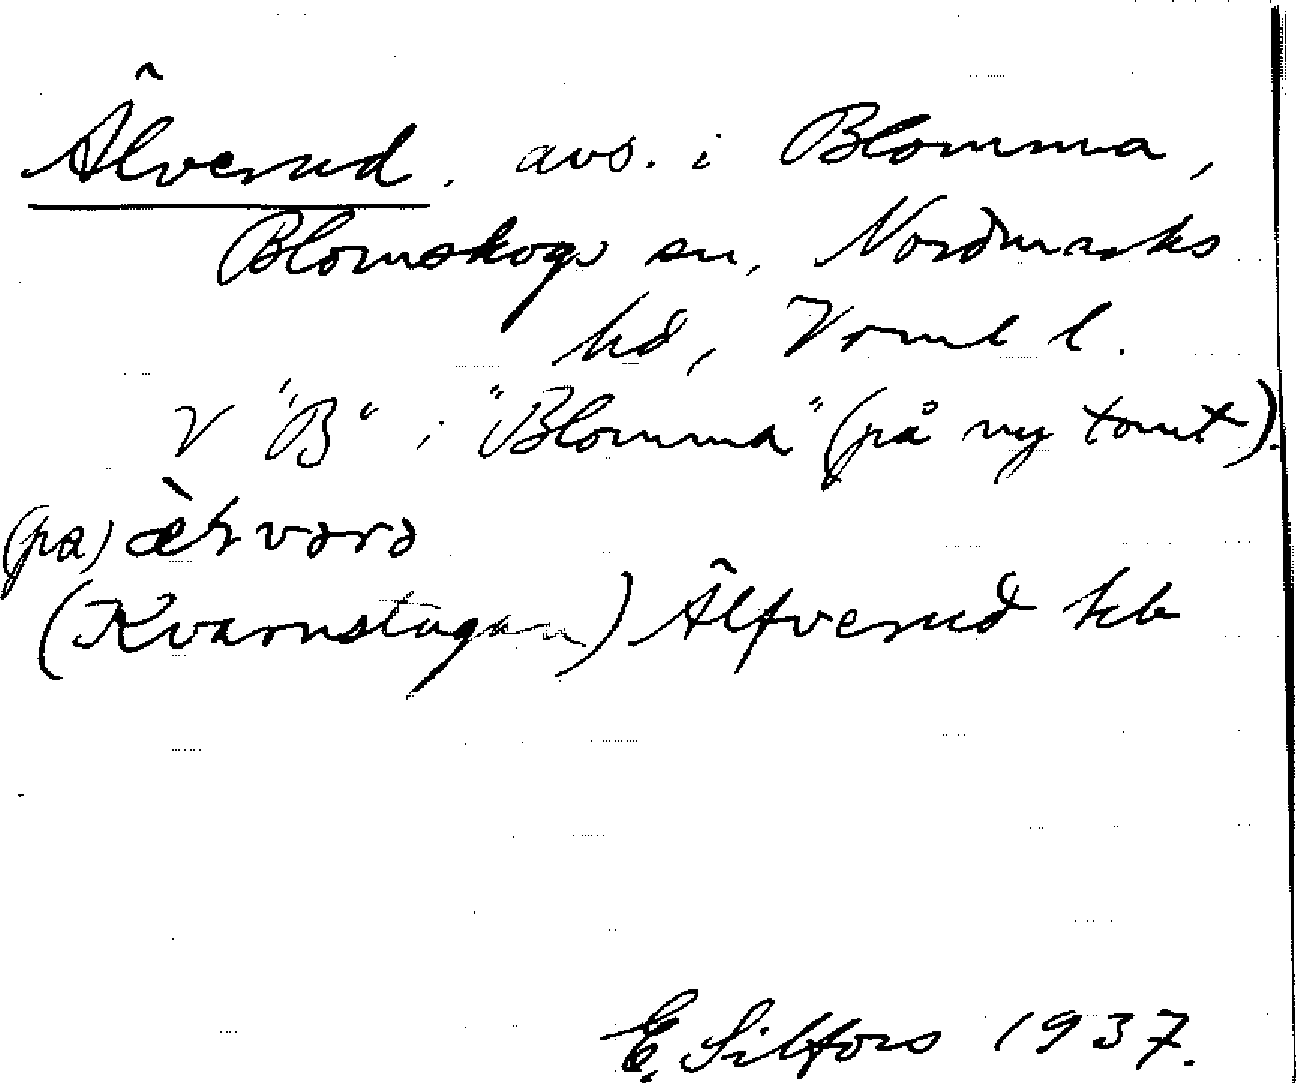 Älverud. avs. i Blomma,
Blomskogs sn, Nordmarks
hd, Vrml l.
V "B" i "Blomma" (på ny tomt).
(pa)
(Kvarnstugan) Älfverud kb
E. Silfors 1937.